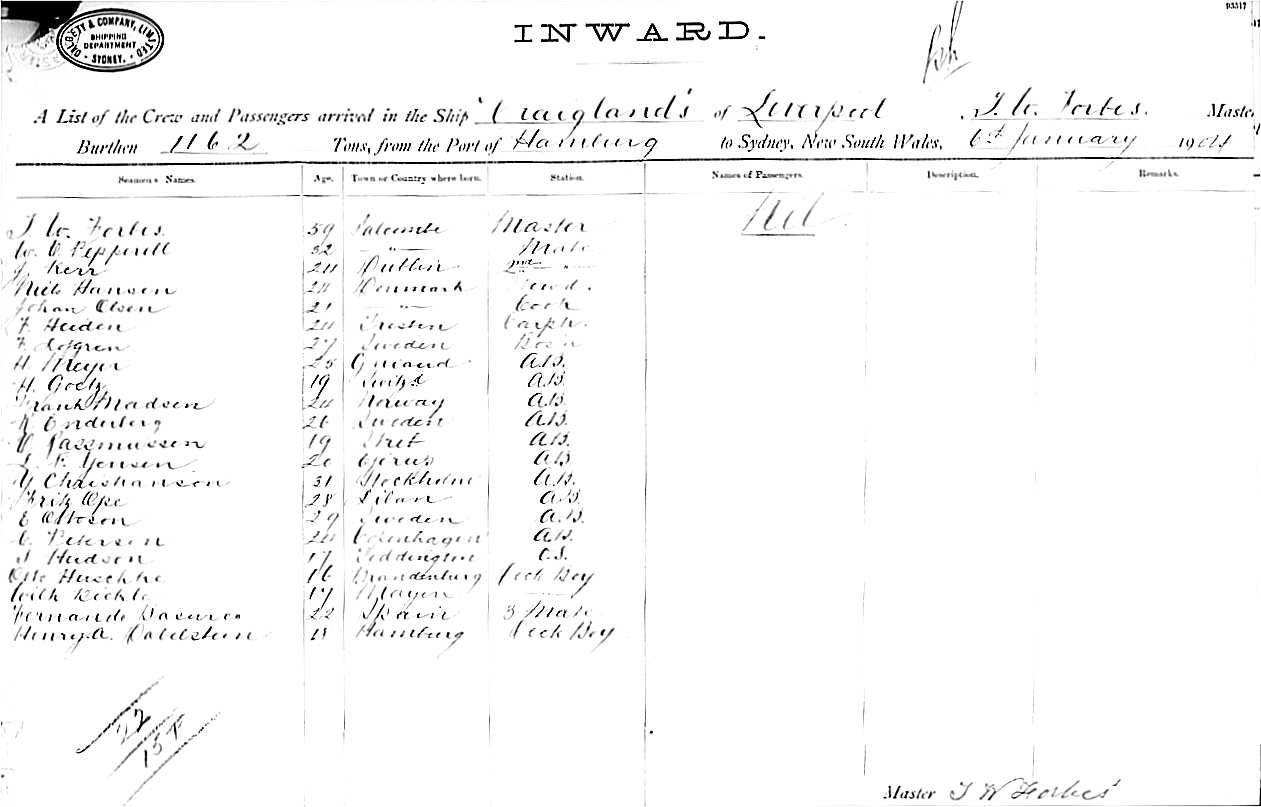 93517
DALGETY & COMPANY, LIMITED
SHIPPING DEPARTMENT
SYDNEY.
INWARD.
A List of the Crew and Passengers arrived in the Ship "Craiglands of Liverpool T. W. Forbes. Master,
Burthen 1162 Tons, from the Port of Hamburg to Sydney, New South Wales, 6th January 1904
Seamen's Names. Age. Town or Country where born. Station. Names of Passengers. Description. Remarks.
T. W. Forbes. 59 Salcombe Master Nil
W. Pepperell 32 — " — Mate
J. Kerr 24 Dublin 2nd "
Niels Hansen 24 Denmark
Johan Olsen 21 — " — Cook
F. Heiden 24 Carptr.
F. Lofgren 27 Sweden Bos'n
H. Meyer 25 A.B.
H. Goetz 19 A.B.
Frank Madsen 24 Norway A.B.
Enderberg 26 Sweden A.B.
Rassmussen 19 A.B.
Yensen 20 A.B.
Y. Chrishanson 31 Stockholm A.B.
Fritz Ope 28 Libau A.B.
E. Ottoson 29 Sweden A.B.
C. Petersen 24 Copenhagen A.B.
Hudson 17 Teddington O.S.
Otto Huschke 16 Brandenburg Deck Boy
17 Mayen
Fernando 22 Spain 3 Mate
Henry A. Dabelstein 18 Hamburg Deck Boy
22
Master T W Forbes